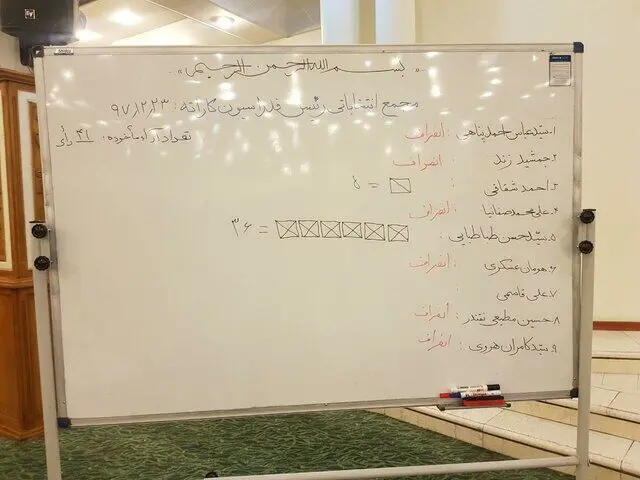 «بسم الله الرحمن الرحیم»
مجمع انتخاباتی رئیس فدراسیون کاراته: ۹۷/۲/۲۳
تعداد آراء مأخوذه: ۴۱ رأی
۱. سید عباس احمدپناهی: انصراف
۲. جمشید زند: انصراف
۳. احمد شفاقی: = ۵
۴. علی محمد صفانیا: انصراف
۵. سید حسن طباطبایی: = ۳۶
۶. هومان عسکری: انصراف
۷. علی قاسمی:
۸. حسین مطیعی نقندر: انصراف
۹. سید کامران هروی: انصراف